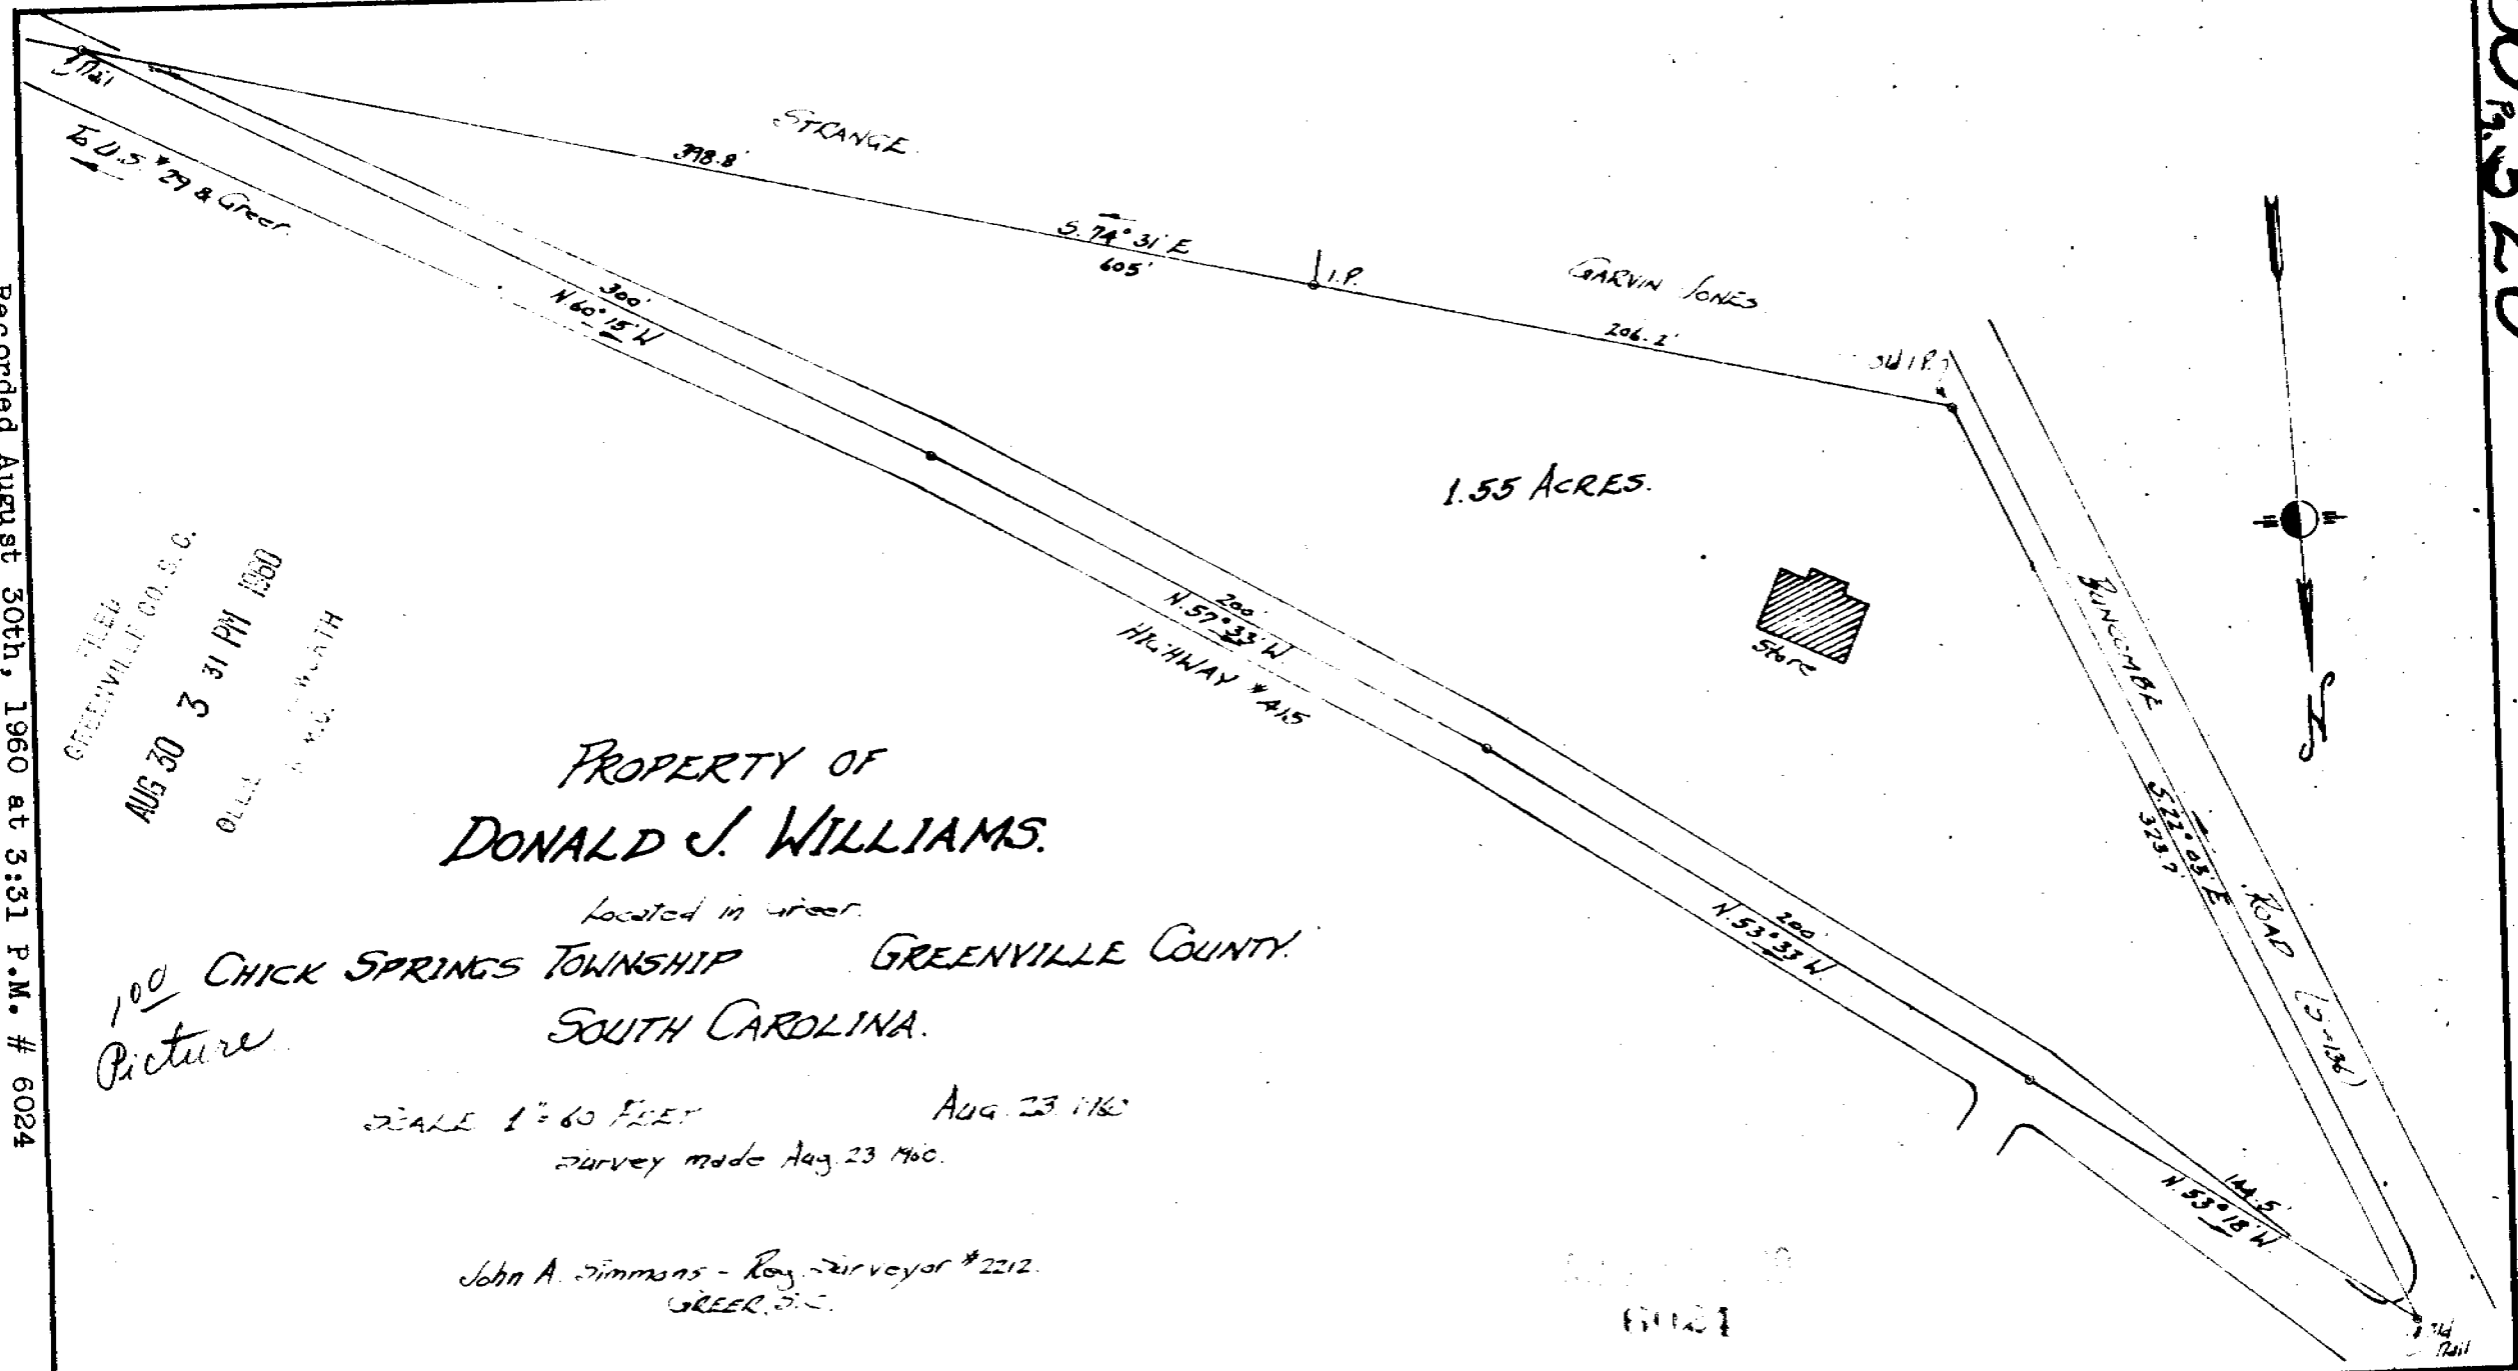 Nail
To U.S. #29 & Greer.
STRANGE
398.8'
S. 74° 31' E
605'
I.P.
GARVIN JONES
206.2'
Old I.P.
300'
N. 60° 15' W
1.55 ACRES.
Store
200'
N. 57° 33' W
HIGHWAY #415
BUNCOMBE
ROAD
S. 22° 03' E
323.7'
200'
N. 53° 33' W
144.5'
N. 53° 18' W
Old
Nail
FILED
GREENVILLE CO. S. C.
AUG 30 3 31 PM 1960
PROPERTY OF
DONALD J. WILLIAMS.
Located in Greer.
CHICK SPRINGS TOWNSHIP GREENVILLE COUNTY.
SOUTH CAROLINA.
1 00
Picture
SCALE 1" = 60 FEET Aug. 23 1960
Survey made Aug. 23 1960.
John A. Simmons - Reg. Surveyor #2212.
GREER, S.C.
Recorded August 30th, 1960 at 3:31 P.M. # 6024